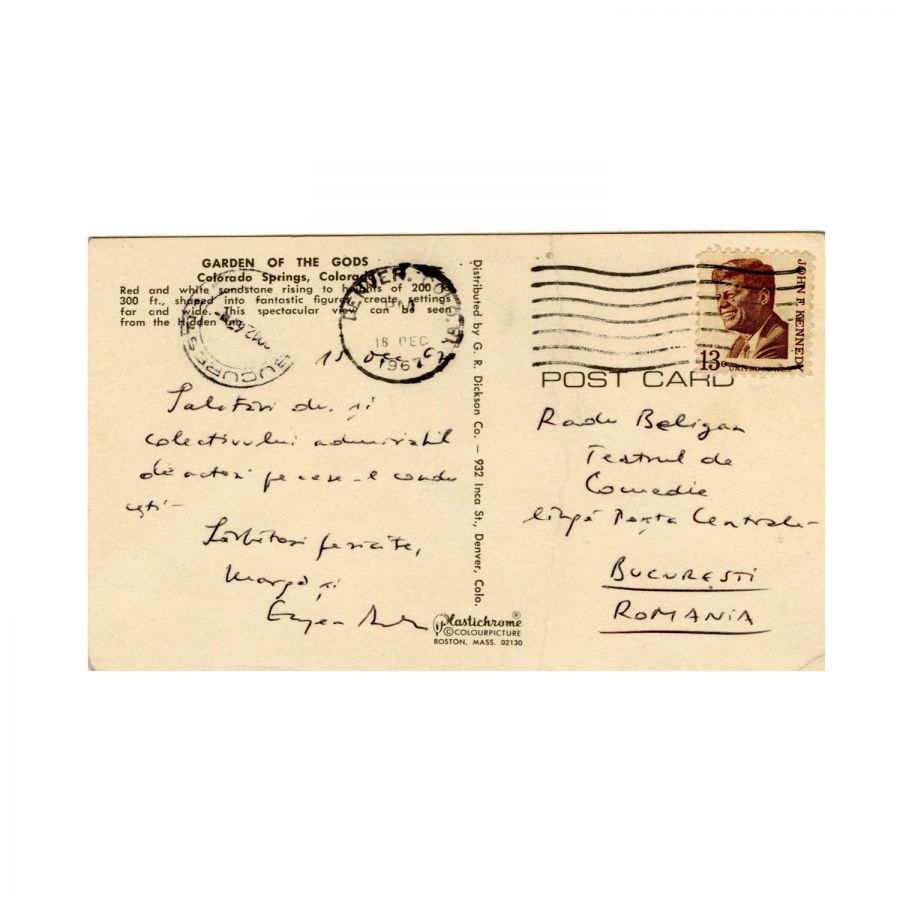 GARDEN OF THE GODS
Colorado Springs, Colorado
Red and white sandstone rising to heights of 200 to
300 ft., shaped into fantastic figures create settings
far and wide. This spectacular view can be seen
from the Hidden Inn.
DENVER, COLO.
PM
16 DEC
1967
BUCUREST
15 Dec 67
Salutări dv. și
colectivului admirabil
de actori pe care-l condu
ceți -
Sărbători fericite,
Marga și
Eugen
Distributed by G. R. Dickson Co. — 932 Inca St., Denver, Colo.
Plastichrome®
©COLOURPICTURE
BOSTON, MASS. 02130
JOHN F. KENNEDY
13c
POST CARD
Radu Beligan
Teatrul de
Comedie
lîngă Poșta Centrală -
BUCUREȘTI
ROMANIA